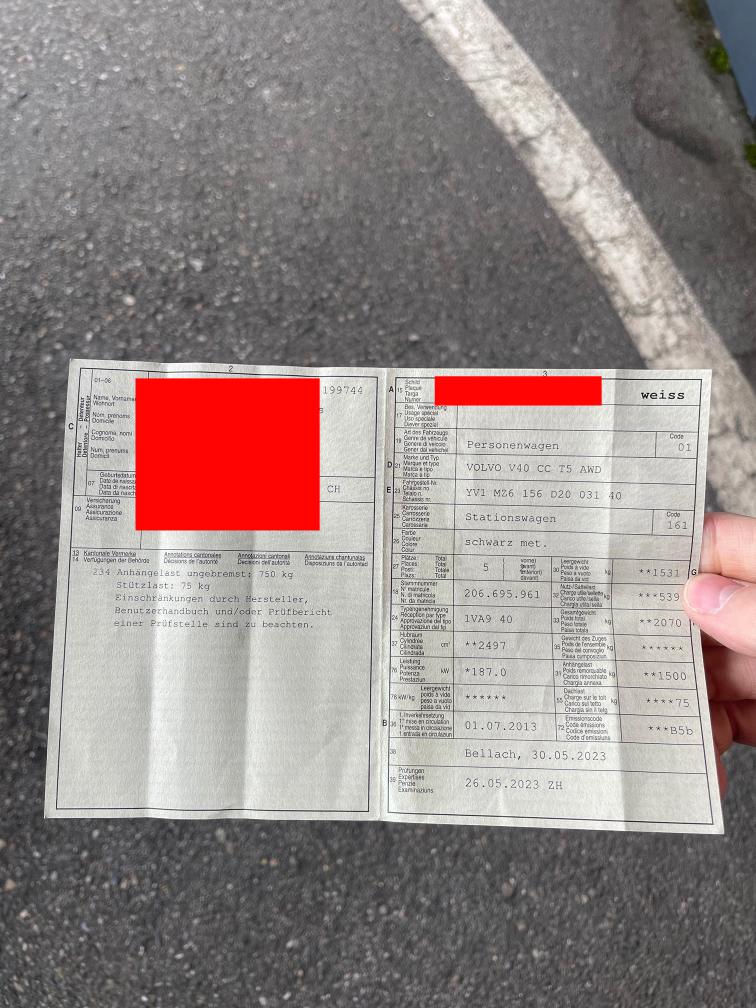 2
01-06
199744
C
Halter Détenteur
Detentore Possessur
Name, Vornamen
Wohnort
Nom, prénoms
Domicile
Cognome, nomi
Domicilio
Num, prenums
Domicil
07
Geburtsdatum
Date de naissance
Data di nascita
Data da nasch
CH
09
Versicherung
Assurance
Assicurazione
Assicuranza
13 Kantonale Vermerke
14 Verfügungen der Behörde
Annotations cantonales
Décisions de l'autorité
Annotazioni cantonali
Decisioni dell'autorità
Annotaziuns chantunalas
Disposiziuns da l'autoritad
234 Anhängelast ungebremst: 750 kg
Stützlast: 75 kg
Einschränkungen durch Hersteller,
Benutzerhandbuch und/oder Prüfbericht
einer Prüfstelle sind zu beachten.
3
A 15
Schild
Plaque
Targa
Numer
weiss
17
Bes. Verwendung
Usage spécial
Uso speciale
Diever spezial
19
Art des Fahrzeugs
Genre de véhicule
Genere di veicolo
Gener dal vehichel
Personenwagen
Code
01
D 21
Marke und Typ
Marque et type
Marca e tipo
Marca e tip
VOLVO V40 CC T5 AWD
E 23
Fahrgestell-Nr.
Châssis no
Telaio n.
Schassis nr.
YV1 MZ6 156 D20 031 40
25
Karosserie
Carrosserie
Carrozzeria
Carossaria
Stationswagen
Code
161
26
Farbe
Couleur
Colore
Colur
schwarz met.
27
Plätze: Total
Places: Total
Posti: Totale
Plazs: Total
5
vorne)
(avant)
(anteriori)
(davant)
30
Leergewicht
Poids à vide
Peso a vuoto
Paisa da vid
kg
**1531
G
18
Stammnummer
N° matricule
N. di matricola
Nr. da matricla
206.695.961
32
Nutz-/Sattellast
Charge utile/sellette
Carico utile/sella
Chargia utila/sella
kg
***539
24
Typengenehmigung
Réception par type
Approvazione del tipo
Approvaziun dal tip
1VA9 40
33
Gesamtgewicht
Poids total
Peso totale
Paisa totala
kg
**2070
37
Hubraum
Cylindrée
Cilindrata
Cilindrada
cm³
**2497
35
Gewicht des Zuges
Poids de l'ensemble
Peso del convoglio
Paisa cumposiziun
kg
******
76
Leistung
Puissance
Potenza
Prestaziun
kW
*187.0
31
Anhängelast
Poids remorquable
Carico rimorchiato
Chargia annexa
kg
**1500
78 kW/kg
Leergewicht
poids à vide
peso a vuoto
paisa da vid
******
55
Dachlast
Charge sur le toit
Carico sul tetto
Chargia sin il tetg
kg
****75
B 36
1. Inverkehrsetzung
1re mise en circulation
1a messa in circolazione
1. entrada en circulaziun
01.07.2013
72
Emissionscode
Code émissions
Codice emissioni
Code d'emissiuns
***B5b
38
Bellach, 30.05.2023
39
Prüfungen
Expertises
Perizie
Examinaziuns
26.05.2023 ZH